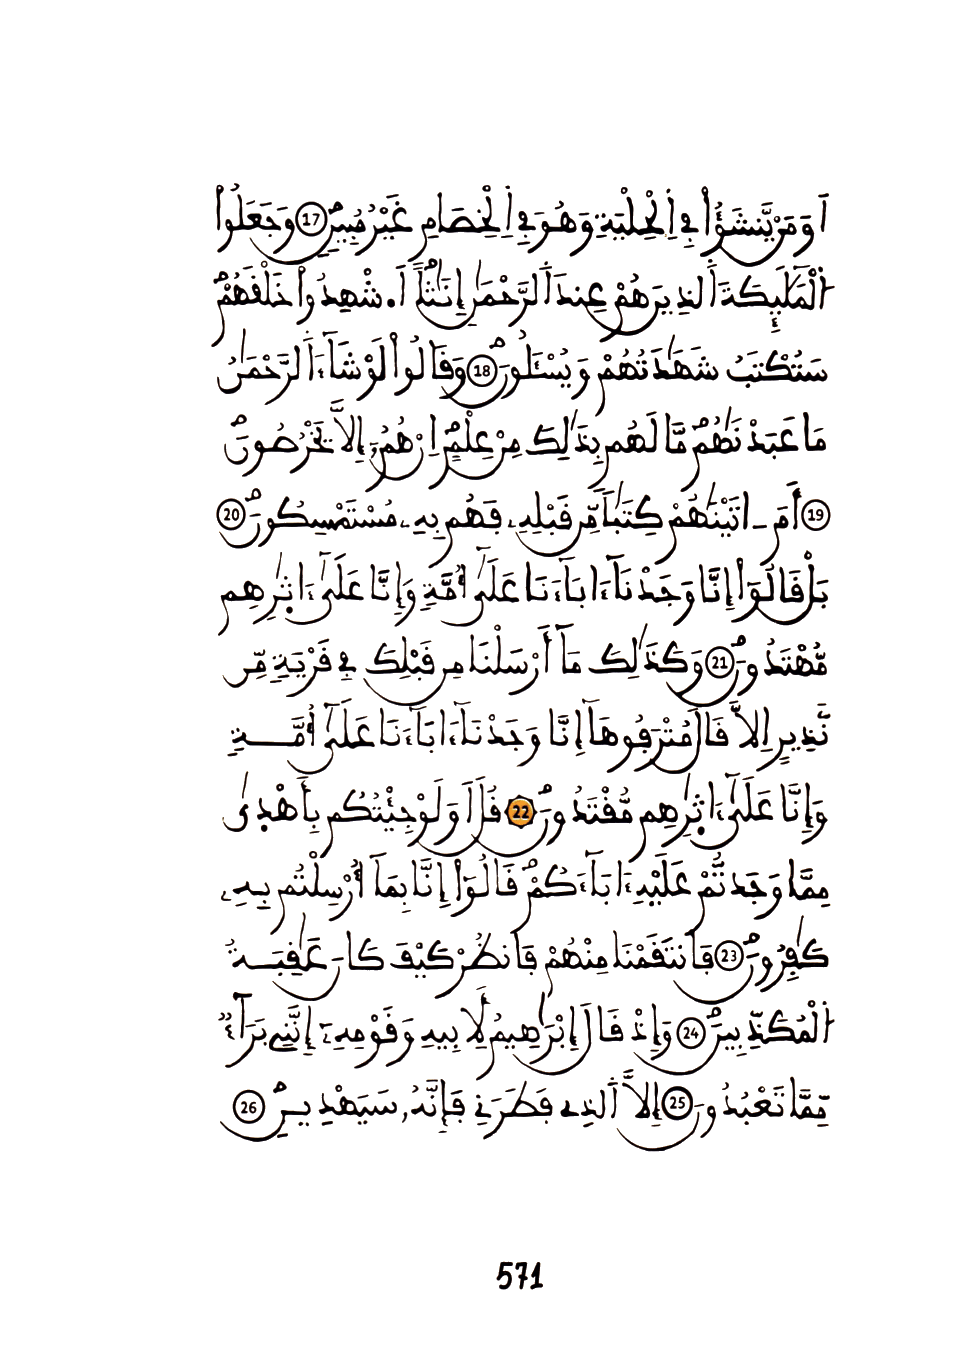 اَوَمَنْ يَّنشَؤُاْ فِے اِ۬لْحِلْيَةِ وَهُوَ فِے اِ۬لْخِصَامِ غَيْرُ مُبِينٖۖ 17 وَجَعَلُواْ
اُ۬لْمَلَٰٓئِكَةَ اَ۬لذِينَ هُمْ عِندَ اَ۬لرَّحْمَٰنِ إِنَٰثاًۖ اَ.شْهِدُواْ خَلْقَهُمْۖ
سَتُكْتَبُ شَهَٰدَتُهُمْ وَيُسْـَٔلُونَۖ 18 وَقَالُواْ لَوْ شَآءَ اَ۬لرَّحْمَٰنُ
مَا عَبَدْنَٰهُمۖ مَّا لَهُم بِذَٰلِكَ مِنْ عِلْمٍۖ اِنْ هُمُۥٓ إِلَّا يَخْرُصُونَۖ
19 أَمَ ـ اتَيْنَٰهُمْ كِتَٰباٗ مِّن قَبْلِهِۦ فَهُم بِهِۦ مُسْتَمْسِكُونَۖ 20
بَلْ قَالُوٓاْ إِنَّا وَجَدْنَآ ءَابَآءَنَا عَلَىٰٓ أُمَّةٖ وَإِنَّا عَلَىٰٓ ءَاثٰ۪رِهِم
مُّهْتَدُونَۖ 21 وَكَذَٰلِكَ مَآ أَرْسَلْنَا مِن قَبْلِكَ فِے قَرْيَةٖ مِّن
نَّذِيرٍ اِلَّا قَالَ مُتْرَفُوهَآ إِنَّا وَجَدْنَآ ءَابَآءَنَا عَلَىٰٓ أُمَّةٖ
وَإِنَّا عَلَىٰٓ ءَاثٰ۪رِهِم مُّقْتَدُونَۖ 22 قُلَ اَوَلَوْ جِئْتُكُم بِأَهْد۪ىٰ
مِمَّا وَجَدتُّمْ عَلَيْهِ ءَابَآءَكُمْۖ قَالُوٓاْ إِنَّا بِمَآ أُرْسِلْتُم بِهِۦ
كَٰفِرُونَۖ 23 فَانتَقَمْنَا مِنْهُمْ فَانظُرْ كَيْفَ كَانَ عَٰقِبَةُ
اُ۬لْمُكَذِّبِينَۖ 24 وَإِذْ قَالَ إِبْرَٰهِيمُ لِأَبِيهِ وَقَوْمِهِۦٓ إِنَّنِے بَرَآءٞ
مِّمَّا تَعْبُدُونَ 25 إِلَّا اَ۬لذِے فَطَرَنِے فَإِنَّهُۥ سَيَهْدِينِۖ 26
571